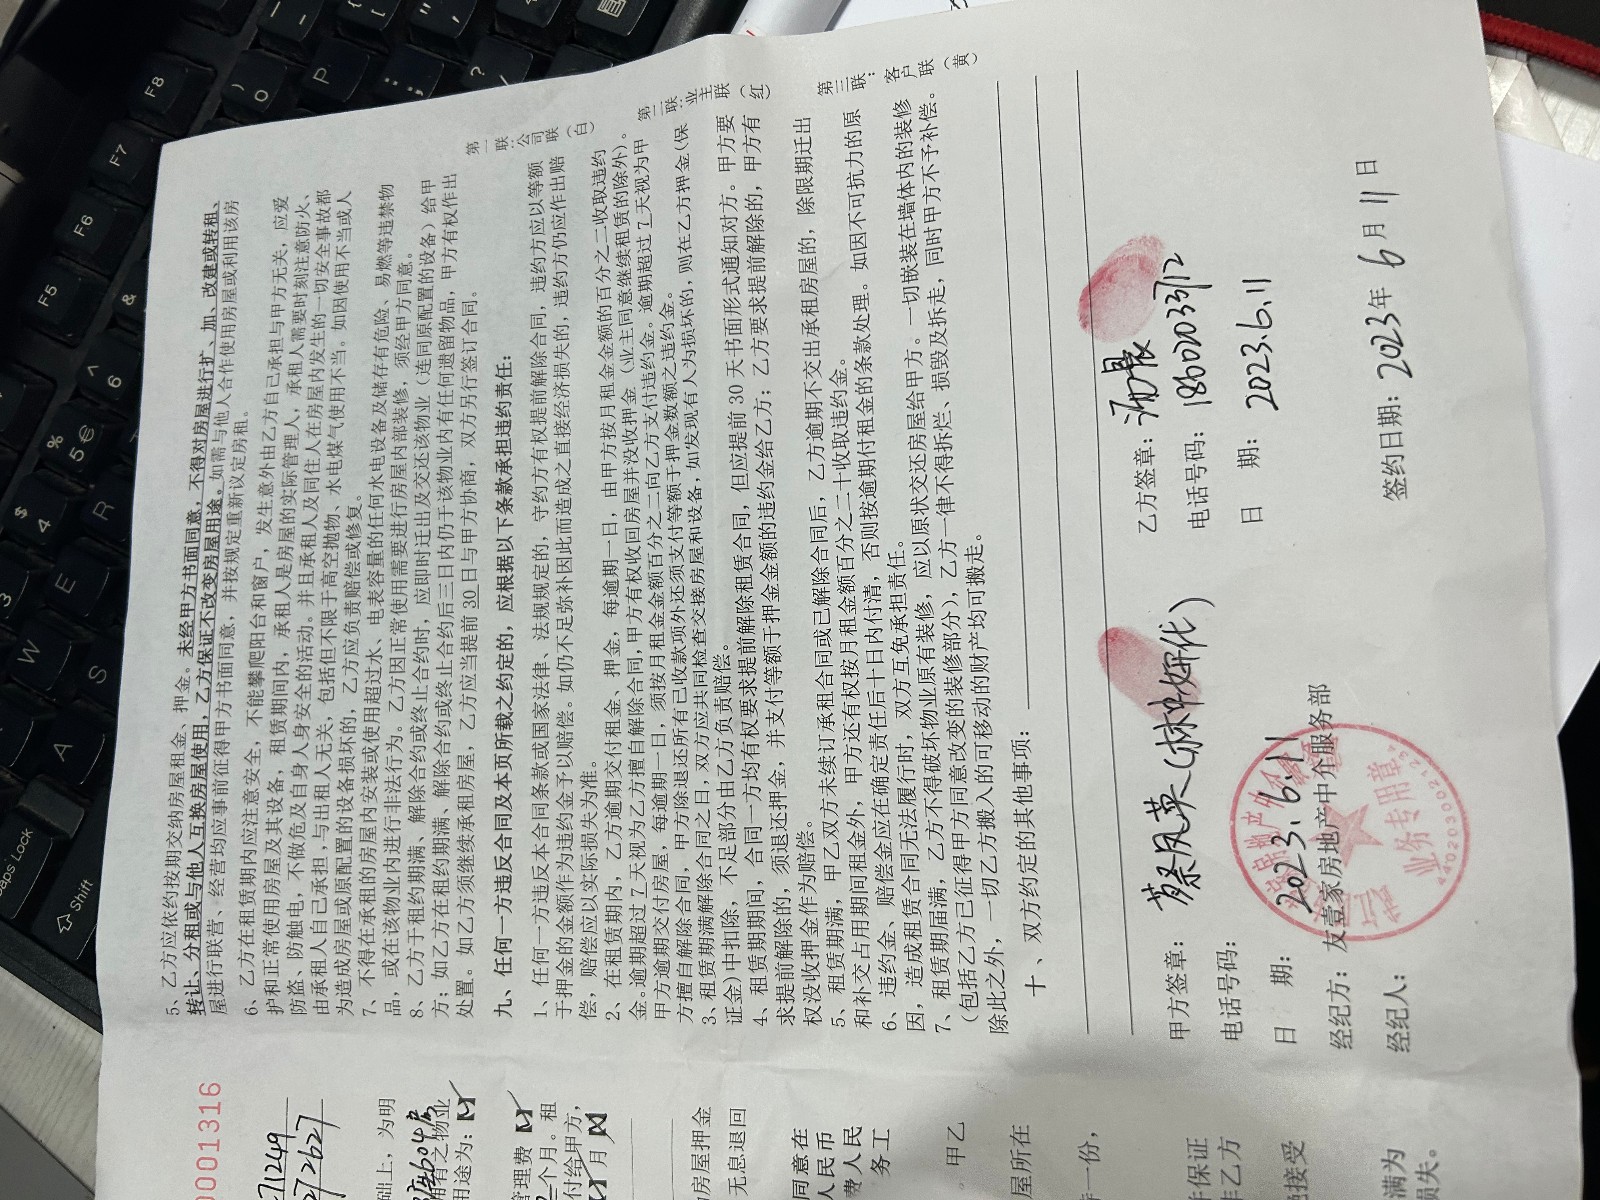 5、乙方应依约按期交纳房屋租金、押金。未经甲方书面同意，不得对房屋进行扩、加、改建或转租、
转让、分租或与他人互换房屋使用，乙方保证不改变房屋用途。如需与他人合作使用房屋或利用该房
屋进行联营、经营均应事前征得甲方书面同意，并按规定重新议定房租。
6、乙方在租赁期内应注意安全，不能攀爬阳台和窗户，发生意外由乙方自己承担与甲方无关，应爱
护和正常使用房屋及其设备，租赁期间内，承租人是房屋的实际管理人，承租人需要时刻注意防火、
防盗、防触电，不做危及自身人身安全的活动。并且承租人及同住人在房屋内发生的一切安全事故都
由承租人自己承担，与出租人无关，包括但不限于高空抛物、水电煤气使用不当。如因使用不当或人
为造成房屋或原配置的设备损坏的，乙方应负责赔偿或修复。
7、不得在承租的房屋内安装或使用超过水、电表容量的任何水电设备及储存有危险、易燃等违禁物
品，或在该物业内进行非法行为。乙方因正常使用需要进行房屋内部装修，须经甲方同意。
8、乙方于租约期满、解除合约或终止合约时，应即时迁出及交还该物业（连同原配置的设备）给甲
方；如乙方在租约期满、解除合约或终止合约后三日内仍于该物业内有任何遗留物品，甲方有权作出
处置。如乙方须继续承租房屋，乙方应当提前 30 日与甲方协商，双方另行签订合同。
九、任何一方违反合同及本页所载之约定的，应根据以下条款承担违约责任：
1、任何一方违反本合同条款或国家法律、法规规定的，守约方有权提前解除合同，违约方应以等额
于押金的金额作为违约金予以赔偿。如仍不足弥补因此而造成之直接经济损失的，违约方仍应作出赔
偿，赔偿应以实际损失为准。
2、在租赁期内，乙方逾期交付租金、押金，每逾期一日，由甲方按月租金金额的百分之二收取违约
金。逾期超过 7 天视为乙方擅自解除合同，甲方有权收回房屋并没收押金（业主同意继续租赁的除外）。
甲方逾期交付房屋，每逾期一日，须按月租金金额百分之二向乙方支付违约金。逾期超过 7 天视为甲
方擅自解除合同，甲方除退还所有已收款项外还须支付等额于押金数额之违约金。
3、租赁期满解除合同之日，双方应共同检查交接房屋和设备，如发现有人为损坏的，则在乙方押金（保
证金）中扣除，不足部分由乙方负责赔偿。
4、租赁期期间，合同一方均有权要求提前解除租赁合同，但应提前 30 天书面形式通知对方。甲方要
求提前解除的，须退还押金，并支付等额于押金金额的违约金给乙方；乙方要求提前解除的，甲方有
权没收押金作为赔偿。
5、租赁期满，甲乙双方未续订承租合同或已解除合同后，乙方逾期不交出承租房屋的，除限期迁出
和补交占用期间租金外，甲方还有权按月租金额百分之二十收取违约金。
6、违约金、赔偿金应在确定责任后十日内付清，否则按逾期付租金的条款处理。如因不可抗力的原
因，造成租赁合同无法履行时，双方互免承担责任。
7、租赁期届满，乙方不得破坏物业原有装修，应以原状交还房屋给甲方。一切嵌装在墙体内的装修
（包括乙方已征得甲方同意改变的装修部分），乙方一律不得拆烂、损毁及拆走，同时甲方不予补偿。
除此之外，一切乙方搬入的可移动的财产均可搬走。
十、双方约定的其他事项：
甲方签章：蔡凤英（林妍代）
电话号码：
日 期：2023.6.11
经纪方：友壹家房地产中介服务部
经纪人：
乙方签章：
电话号码：18602033712
日 期：2023.6.11
签约日期：2023年 6 月 11 日
第一联：公司联（白）
第二联：业主联（红）
第三联：客户联（黄）
业务专用章
0001316
71249
2627
础上，为明
有之物业
用途为：
管理费
个月。租
付给甲方，
月
房屋押金
无息退回
同意在
人民币
费人民
务工
。甲乙
屋所在
一份，
保证
乙方
接受
满为
损失。
F8
F7
F6
F5
&
^
6
%
5 €
$
4
3
R
E
W
S
A
P
O
Caps Lock
Shift